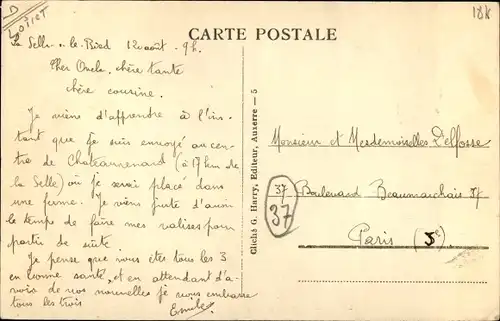 D
Loiret
18k
CARTE POSTALE
La Selle-s-le-Bied 12 août - 9h.
Cher Oncle, chère tante
chère cousine.
Je viens d'apprendre à l'ins-
tant que je suis envoyé au cen-
tre de Chateaurenard (à 17 km de
la Selle) où je serai placé dans
une ferme. Je viens juste d'avoir
le temps de faire mes valises pour
partir de suite
Je pense que vous êtes tous les 3
en bonne santé, et en attendant d'a-
voir de vos nouvelles je vous embrasse
tous les trois
Emile
Cliché G. Harry, Editeur, Auxerre — 5
Monsieur et Mesdemoiselles Delfosse
37 Boulevard Beaumarchais 37
37
Paris (3e)